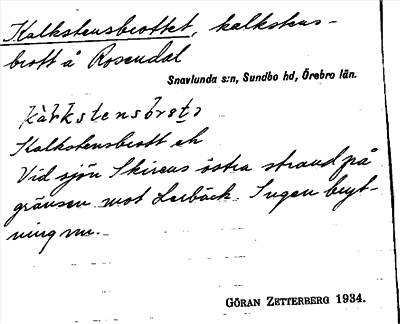 Kalkstensbrottet, kalkstens-
brott å Rosendal
Snavlunda s:n, Sundbo hd, Örebro län.
Kalkstensbrott eh
Vid sjön Skirens östra strand på
gränsen mot Lerbäck. Ingen bryt-
ning nu.
GÖRAN ZETTERBERG 1934.